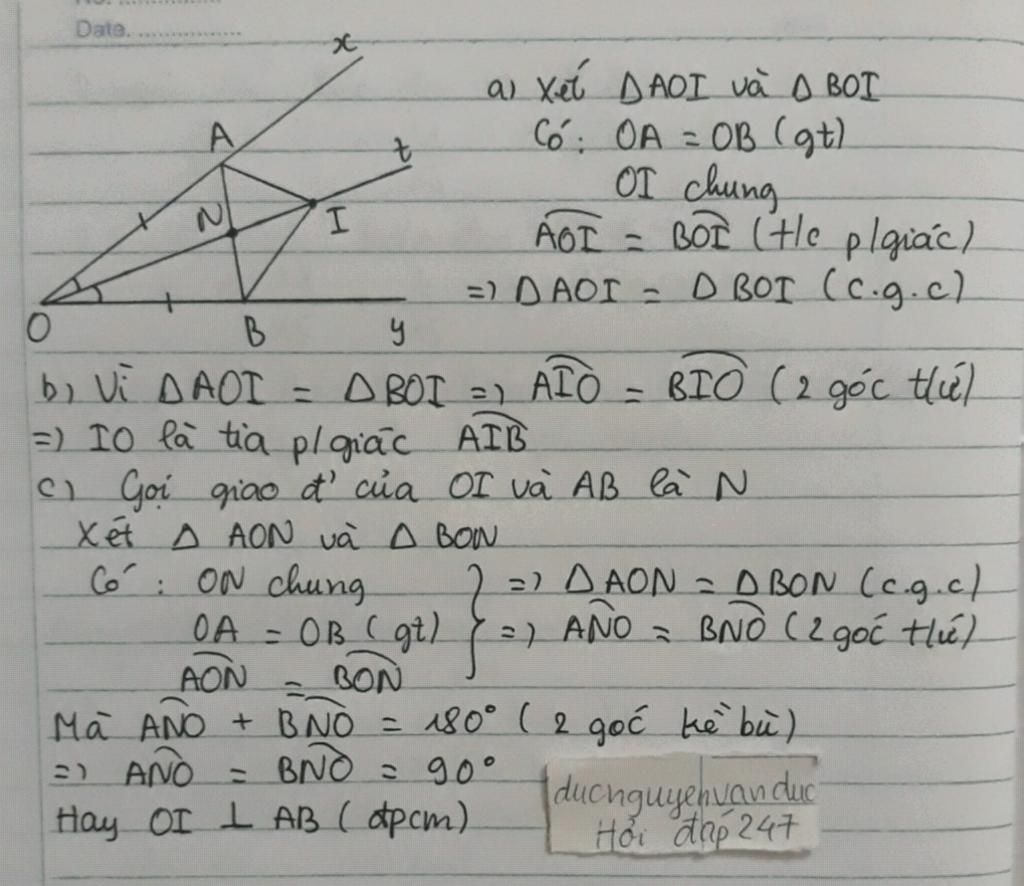 No. ..................
Date. ..................
x
A
t
N
I
O
B
y
a) Xét ΔAOI và ΔBOI
Có: OA = OB (gt)
OI chung
AOI = BOI (t/c p/giác)
=) ΔAOI = ΔBOI (c.g.c)
b) Vì ΔAOI = ΔBOI =) AIO = BIO (2 góc t/ứ)
=) IO là tia p/giác AIB
c) Gọi giao đ' của OI và AB là N
Xét Δ AON và Δ BON
Có: ON chung } =) ΔAON = ΔBON (c.g.c)
OA = OB (gt) =) ANO = BNO (2 góc t/ứ)
AON = BON
Mà ANO + BNO = 180° (2 góc kề bù)
=) ANO = BNO = 90°
Hay OI ⊥ AB (đpcm)
ducnguyenvanduc
Hỏi đáp 247